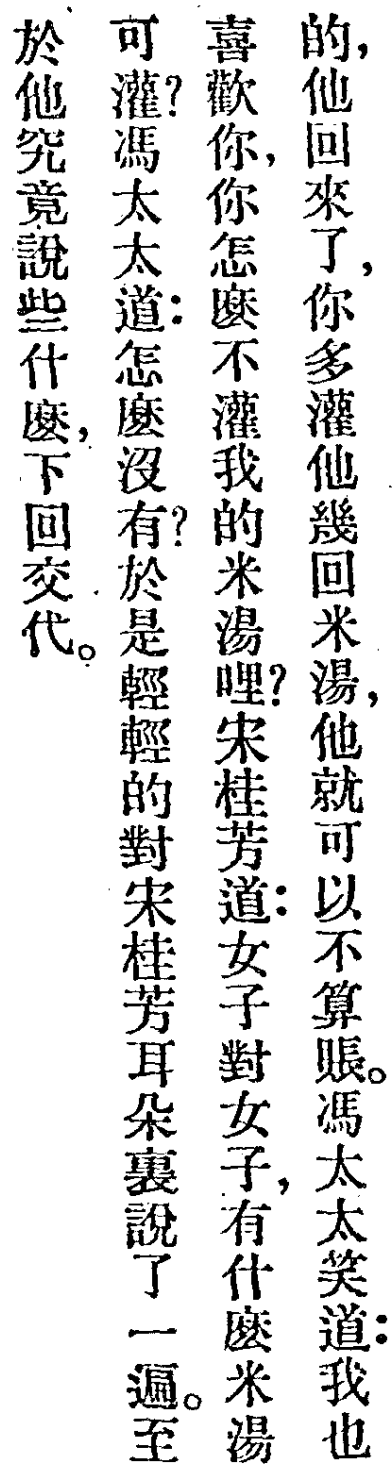 的,他回來了,你多灌他幾回米湯,他就可以不算賬。馮太太笑道:我也
喜歡你,你怎麼不灌我的米湯哩?宋桂芳道:女子對女子,有什麼米湯
可灌?馮太太道:怎麼沒有?於是輕輕的對宋桂芳耳朵裏說了一遍。至
於他究竟說些什麼,下回交代。